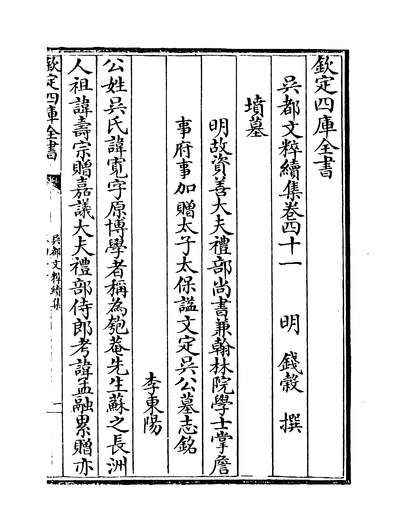 欽定四庫全書
吳都文粹續集卷四十一　　明　錢穀　撰
墳墓
明故資善大夫禮部尚書兼翰林院學士掌詹
事府事加贈太子太保諡文定吳公墓志銘
李東陽
公姓吳氏諱寬字原博學者稱為匏菴先生蘇之長洲
人祖諱壽宗贈嘉議大夫禮部侍郎考諱孟融累贈亦
欽定四庫全書
吳都文粹續集
一